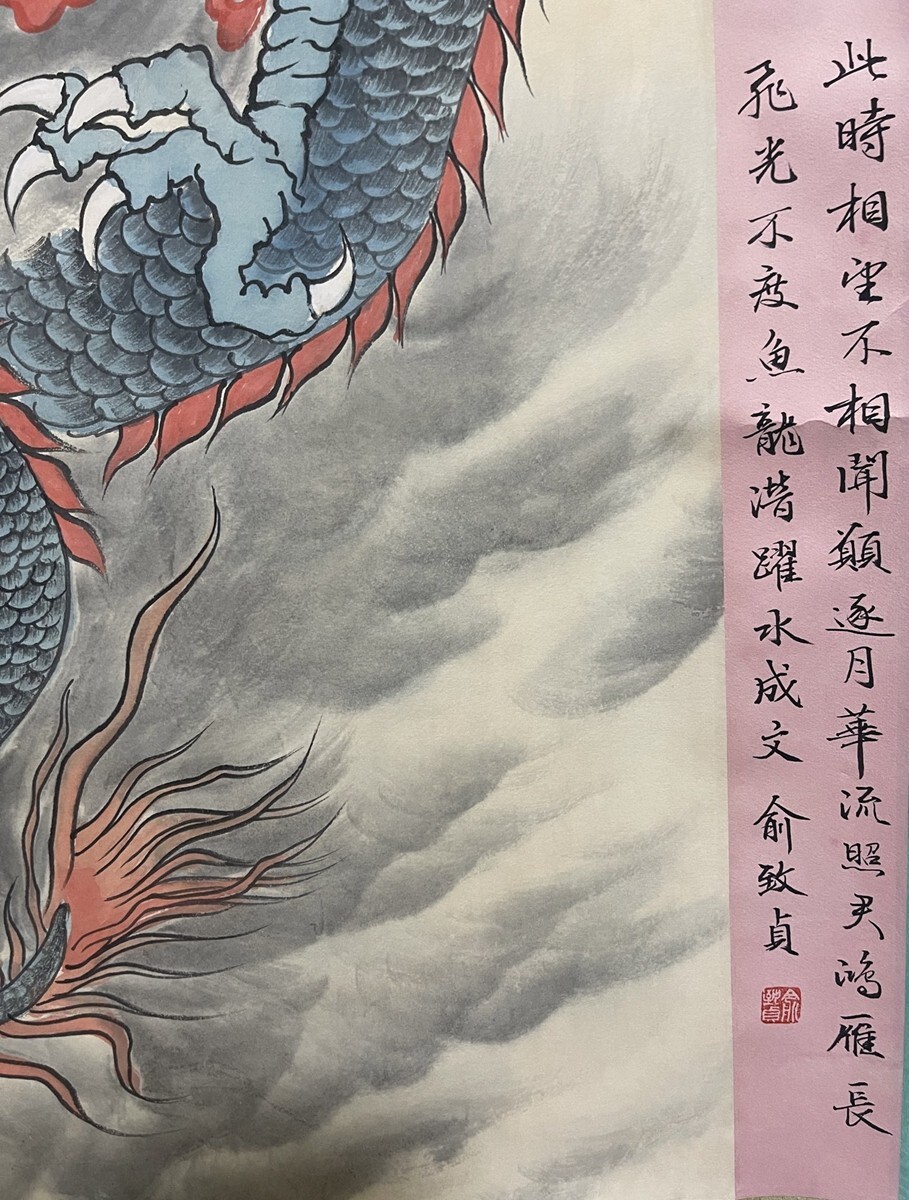 此時相望不相聞願逐月華流照君鴻雁長
飛光不度魚龍潛躍水成文 俞致貞
俞致貞